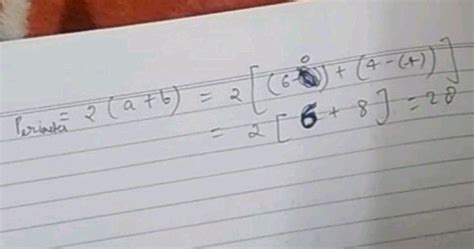 Perimeter = 2(a+b) = 2[(6-0)+(4-(-4))]
= 2[6+8] = 28